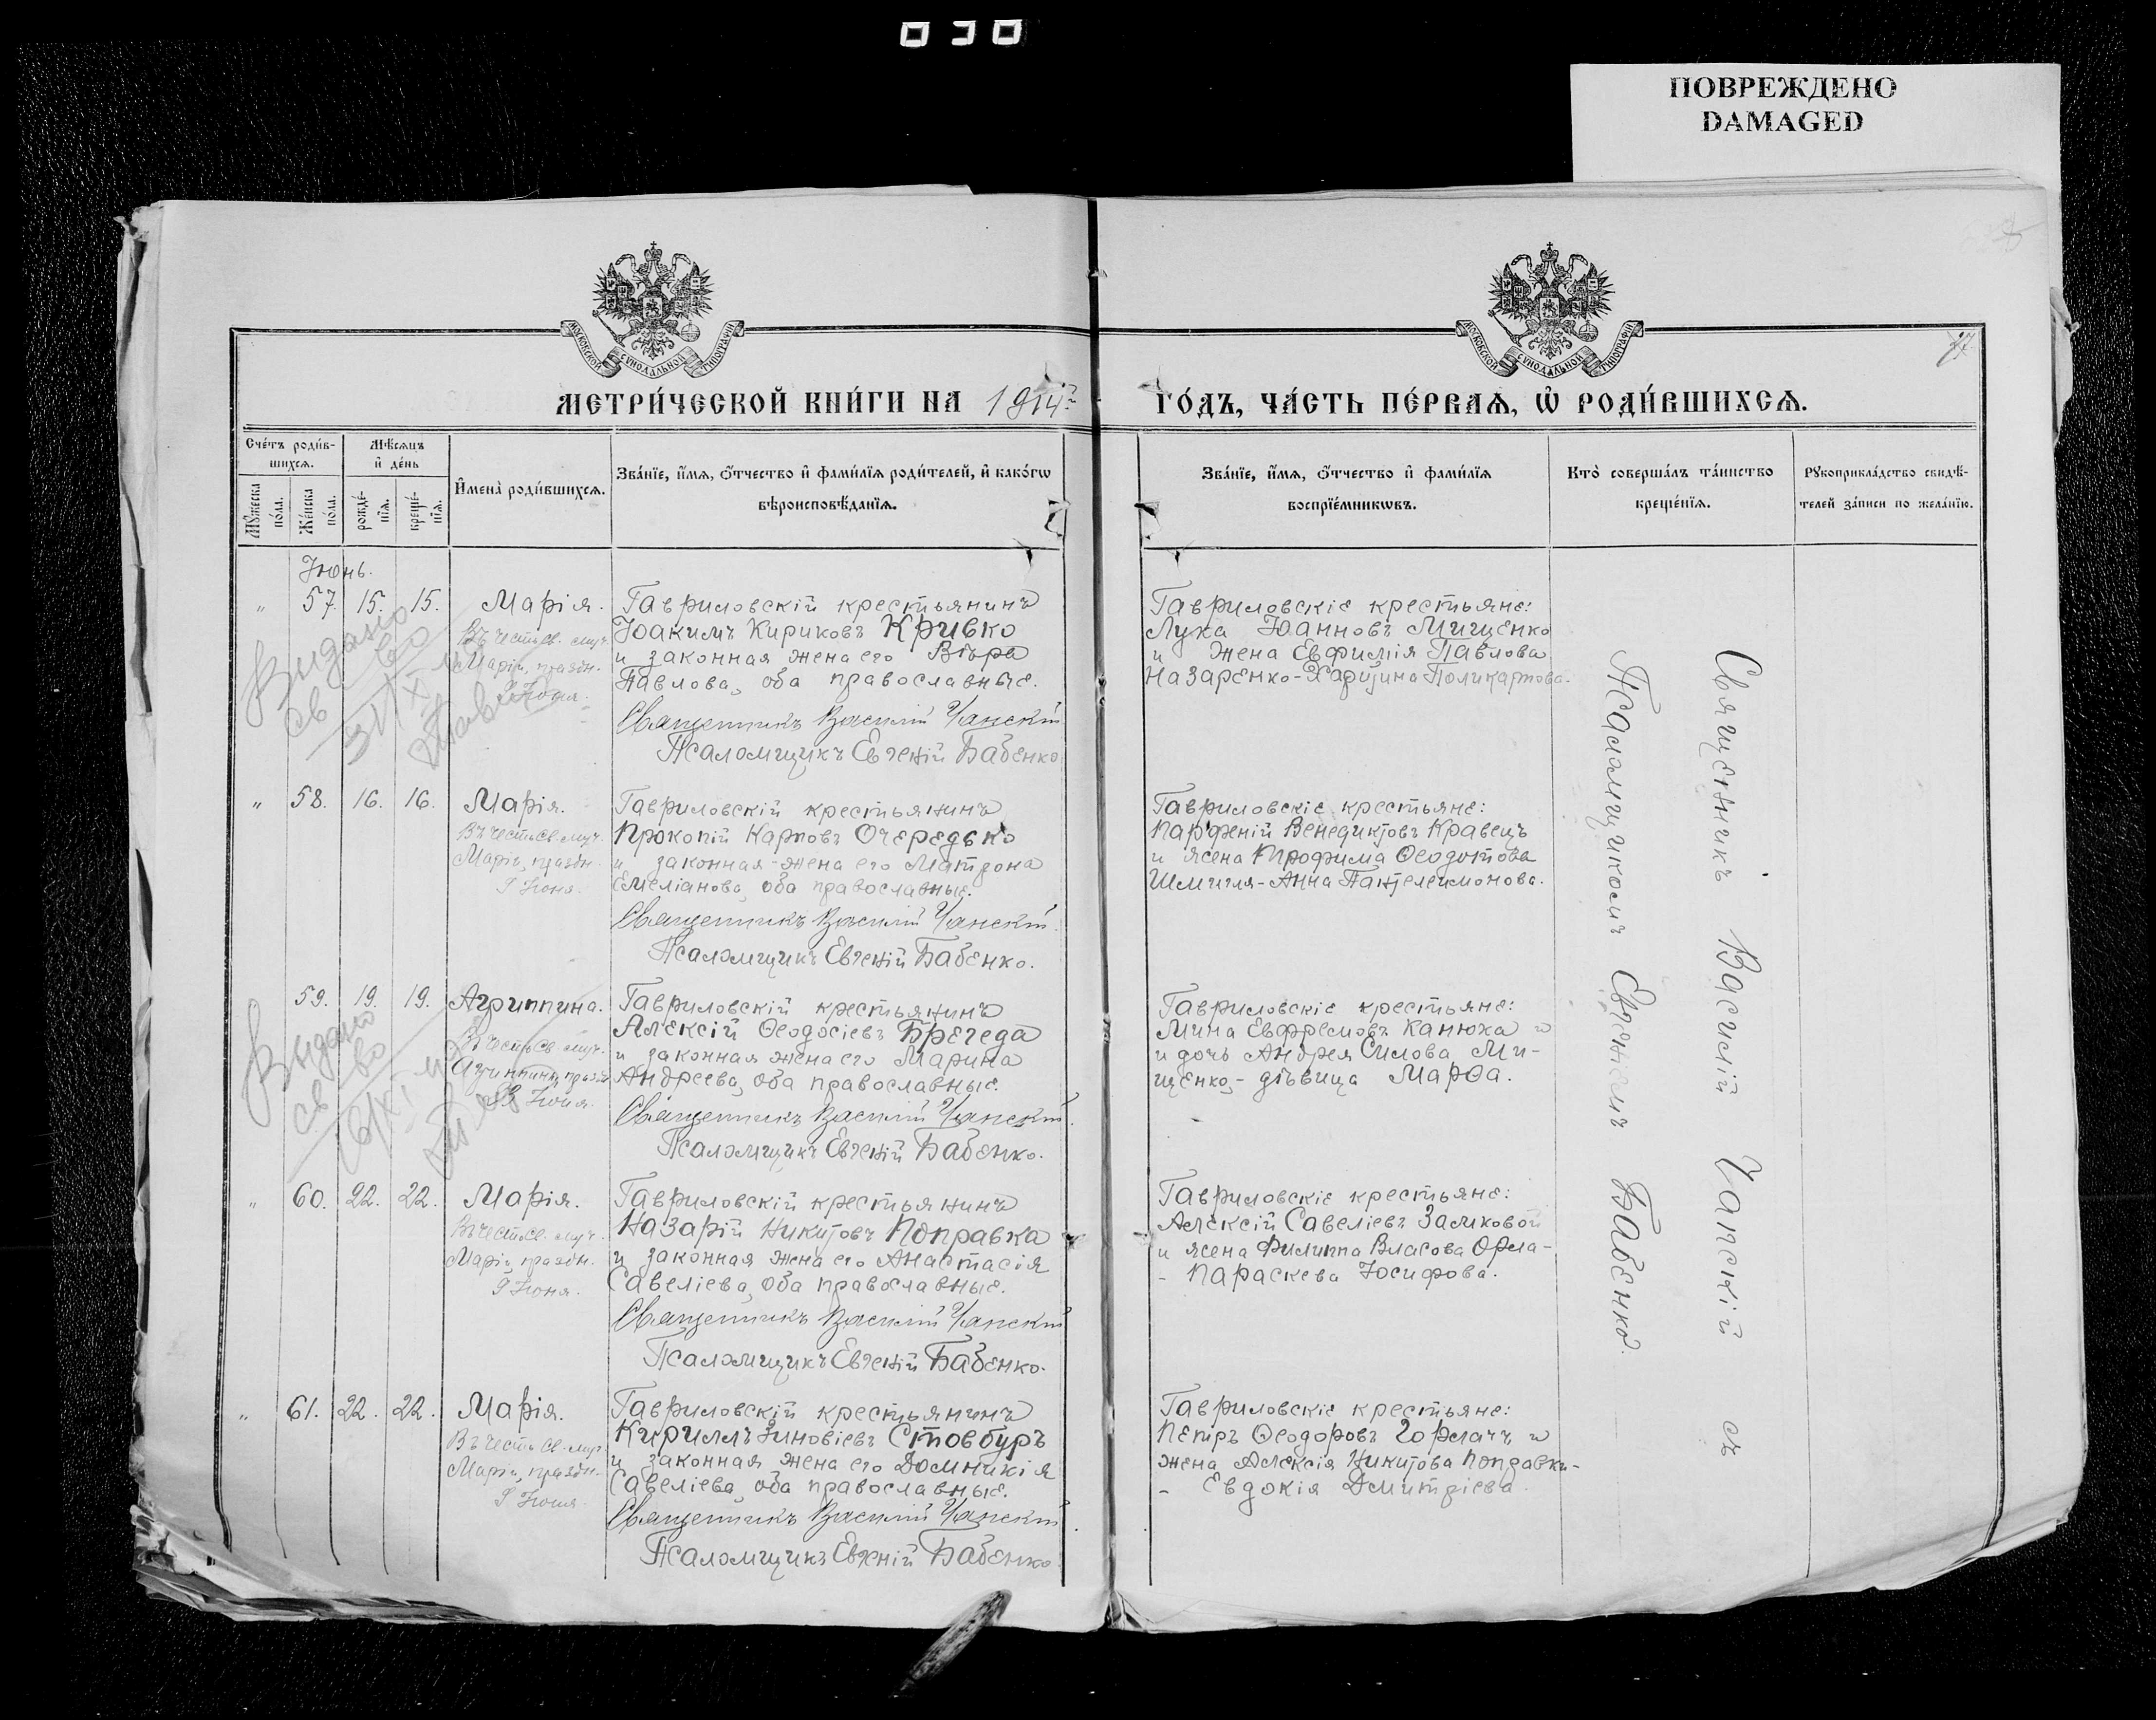 030
ПОВРЕЖДЕНО
DAMAGED
МОСКОВСКОЙ СѴНОДАЛЬНОЙ ТИПОГРАФІИ
МОСКОВСКОЙ СѴНОДАЛЬНОЙ ТИПОГРАФІИ
МЕТРИ́ЧЕСКОЙ КНИ́ГИ НА 1914й
ГО́ДЪ, ЧА́СТЬ ПЕ́РВАѦ, Ѡ҆ РОДИ́ВШИХСѦ.
Сче́тъ роди́в-
шихсѧ.
Мꙋ́жеска
по́ла.
Же́нска
по́ла.
Мѣ́сѧцъ
и҆ де́нь
рожде́-
нїѧ.
креще́-
нїѧ.
И҆мена̀ роди́вшихсѧ.
Зва́нїе, и҆́мѧ, ѻ҆́тчество и҆ фами́лїѧ роди́телей, и҆ како́гѡ
вѣроисповѣ́данїѧ.
Зва́нїе, и҆́мѧ, ѻ҆́тчество и҆ фами́лїѧ
воспрїе́мникѡвъ.
Кто̀ соверша́лъ та́инство
креще́нїѧ.
Рꙋкоприкла́дство свидѣ́-
телей за́писи по жела́нїю.
Іюнь.
" 57. 15. 15. Марія.
Въ честь св. муч.
Маріи, праздн.
9 Іюня.
Гавриловскій крестьянинъ
Іоакимъ Кириковъ Кривко
и законная жена его Вѣра
Павлова, оба православные.
Священникъ Василій Чапскій
Псаломщикъ Евгеній Бабенко
Гавриловскіе крестьяне:
Лука Іоанновъ Мищенко
и жена Евфимія Павлова
Назаренко-Харитина Поликарпова.
Выдано
св во
" 58. 16. 16. Марія.
Въ честь св. муч.
Маріи, праздн.
9 Іюня.
Гавриловскій крестьянинъ
Прокопій Карповъ Очередько
и законная жена его Матрона
Емеліанова, оба православные.
Священникъ Василій Чапскій.
Псаломщикъ Евгеній Бабенко.
Гавриловскіе крестьяне:
Парфеній Венедиктовъ Кравецъ
и жена Трофима Ѳеодотова
Шмигля-Анна Пантелеимонова.
59. 19. 19. Агриппина.
Въ честь св. муч.
Агриппины, праздн.
23 Іюня.
Гавриловскій крестьянинъ
Алексій Ѳеодосіевъ Брегеда
и законная жена его Марина
Андреева, оба православные.
Священникъ Василій Чапскій.
Псаломщикъ Евгеній Бабенко.
Гавриловскіе крестьяне:
Мина Евфремовъ Канюка и
и дочь Андрея Силова Ми-
щенко,- дѣвица Марѳа.
Выдано
св во
" 60. 22. 22. Марія.
Въ честь св. муч.
Маріи, праздн.
9 Іюня.
Гавриловскій крестьянинъ
Назарій Никитовъ Поправка
и законная жена его Анастасія
Савеліева, оба православные.
Священникъ Василій Чапскій
Псаломщикъ Евгеній Бабенко.
Гавриловскіе крестьяне:
Алексій Савеліевъ Замковой
и жена Филиппа Власова Орла-
- Параскева Іосифова.
" 61. 22. 22. Марія.
Въ честь св. муч.
Маріи, праздн.
9 Іюня.
Гавриловскій крестьянинъ
Кириллъ Зиновіевъ Стовбуръ
и законная жена его Домникія
Савеліева, оба православные.
Священникъ Василій Чапскій
Псаломщикъ Евгеній Бабенко
Гавриловскіе крестьяне:
Петръ Ѳеодоровъ Горлачъ и
жена Алексія Никитова Поправки-
- Евдокія Дмитріева.
Священникъ Василій Чапскій съ
Псаломщикомъ Евгеніемъ Бабенко.